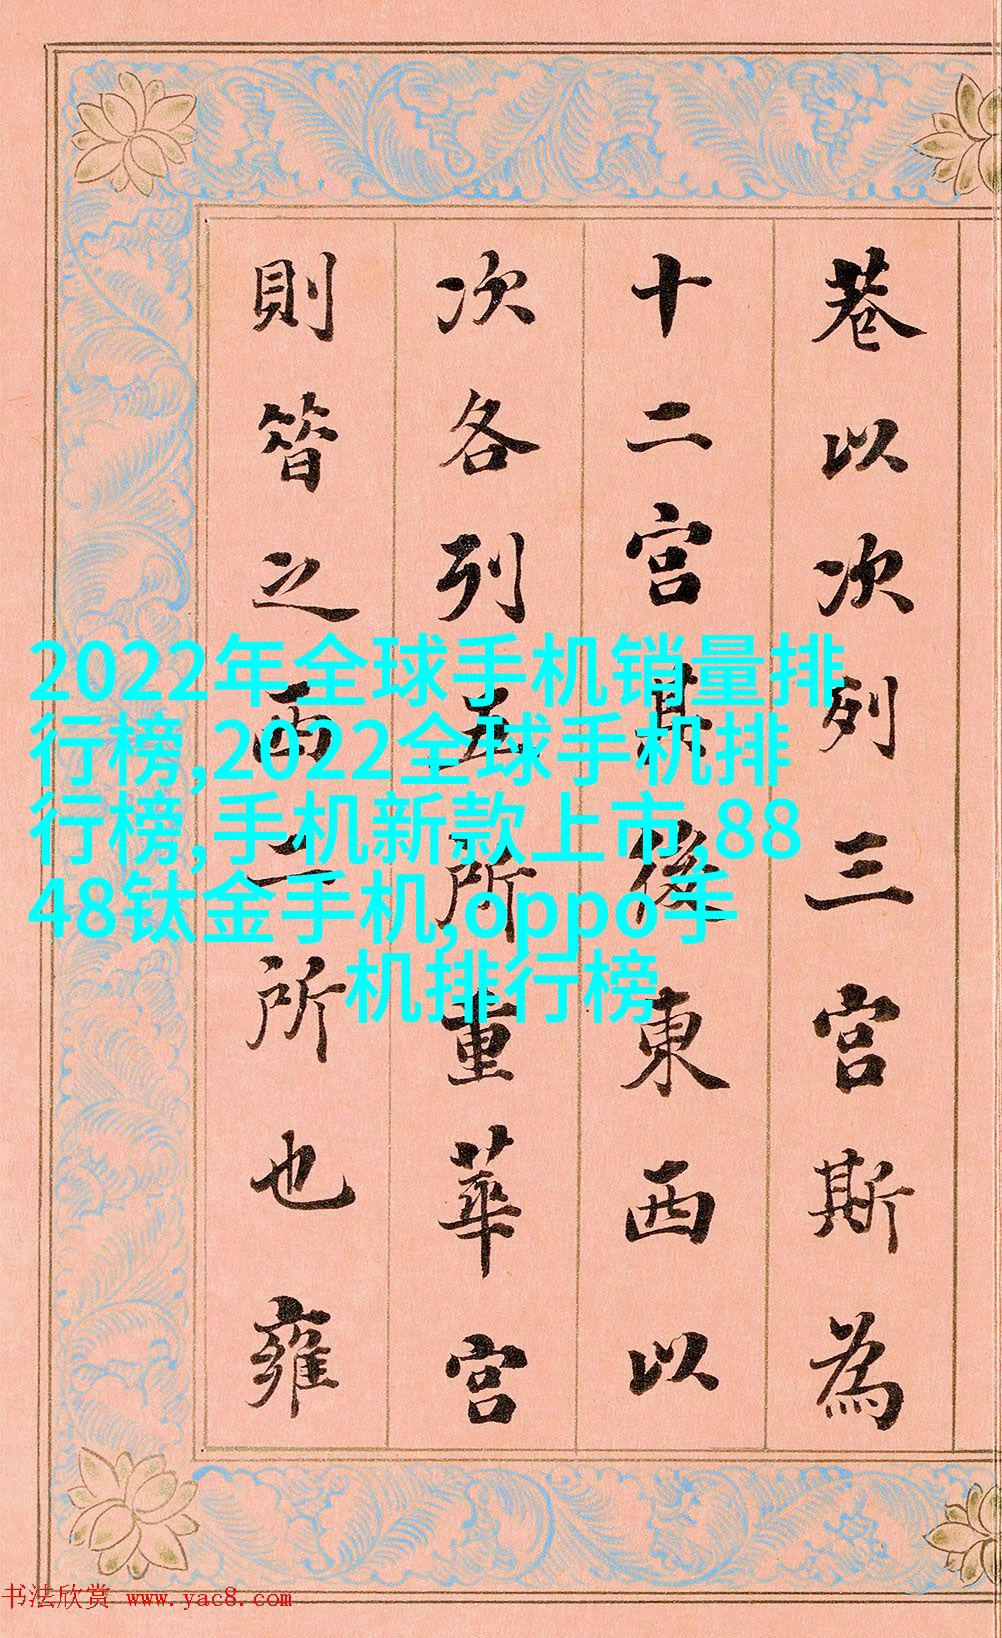 巷以次列三宮斯為
十二宮其後東西以
次各列五所重華宮
則昔之西二所也雍
2022年全球手机销量排
行榜,2022全球手机排
行榜,手机新款上市,88
48钛金手机,oppo手
机排行榜
书法欣赏 www.yac8.com